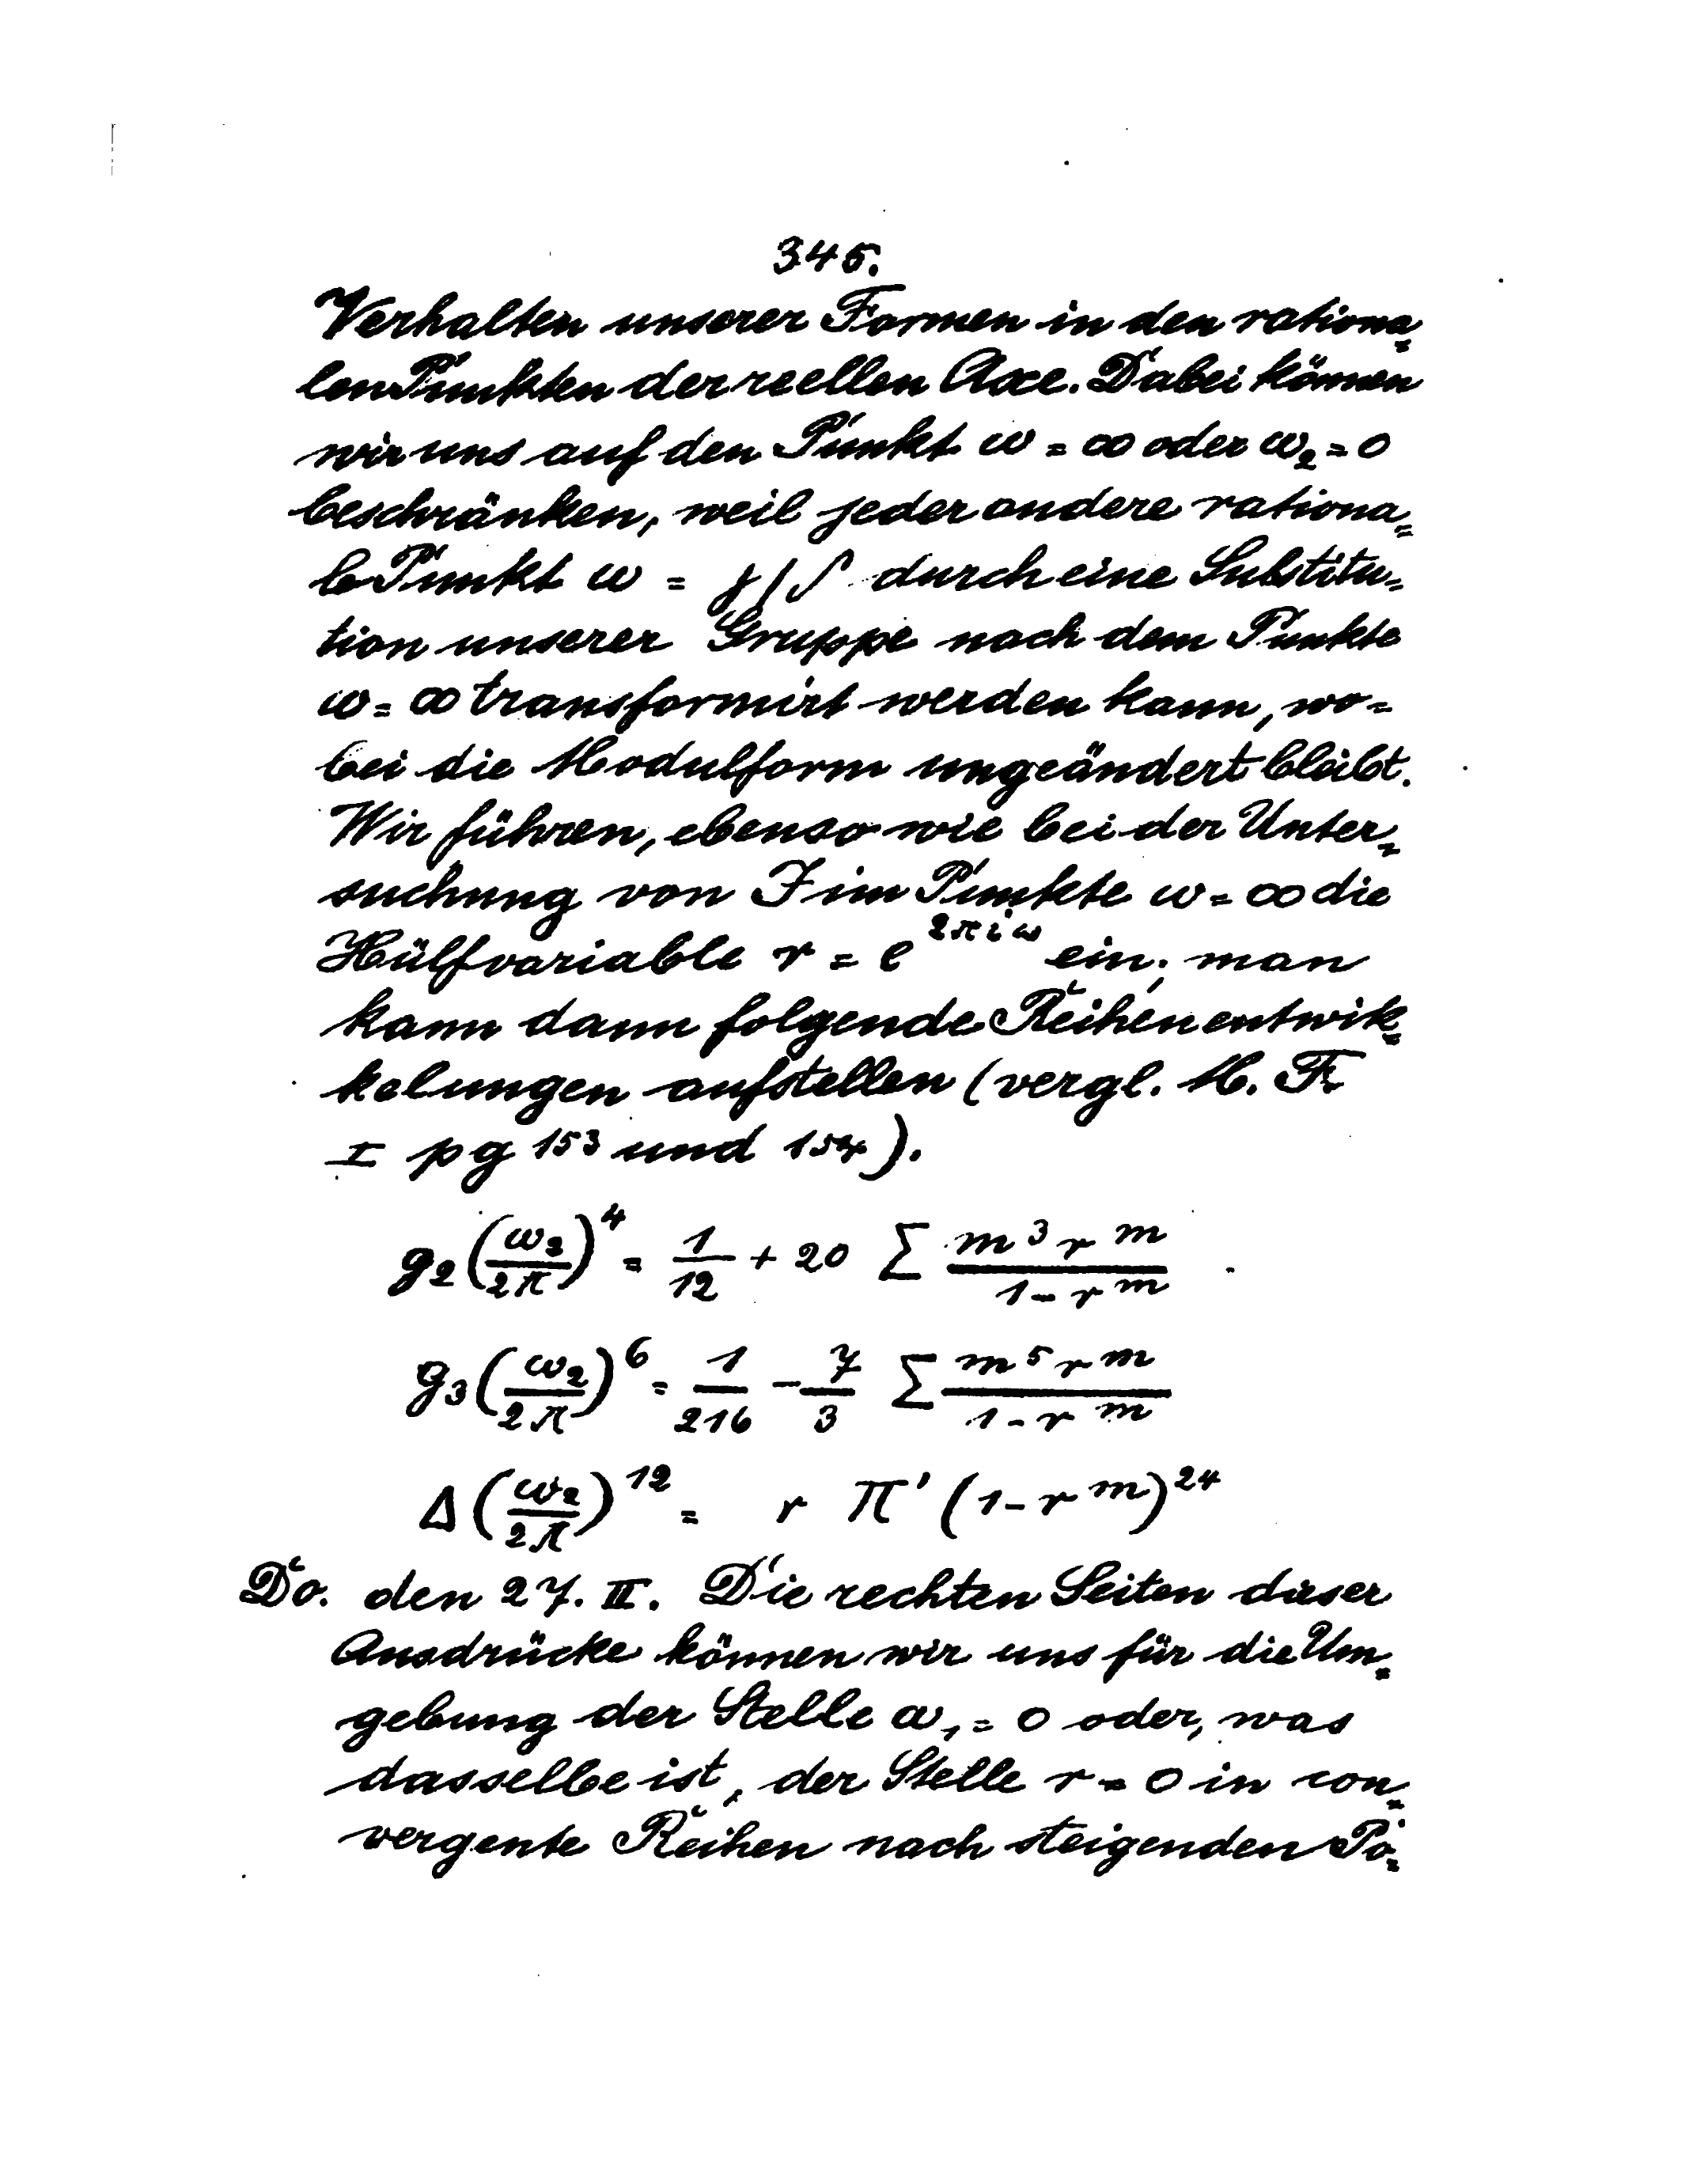 345.
Verhalten unserer Formen in den rationa=
len Punkten der reellen Axe. Dabei können
wir uns auf den Punkt ω = ∞ oder ω₂ = 0
beschränken, weil jeder andere rationa=
le Punkt ω = γ/δ durch eine Substitu=
tion unserer Gruppe nach dem Punkte
ω = ∞ transformirt werden kann, wo=
bei die Modulform ungeändert bleibt.
Wir führen, ebenso wie bei der Unter=
suchung von J im Punkte ω = ∞ die
Hülfvariable r = e^{2πiω} ein; man
kann dann folgende Reihenentwik=
kelungen aufstellen (vergl. M. F.
I pg 153 und 154).
g₂(ω₂/2π)⁴ = 1/12 + 20 Σ m³r^m/(1-r^m)
g₃(ω₂/2π)⁶ = 1/216 - 7/3 Σ m⁵r^m/(1-r^m)
Δ(ω₂/2π)¹² = r Π'(1-r^m)²⁴
Do. den 27. II. Die rechten Seiten dieser
Ausdrücke können wir uns für die Um=
gebung der Stelle ω₁ = 0 oder, was
dasselbe ist, der Stelle r = 0 in con=
vergente Reihen nach steigenden Po=